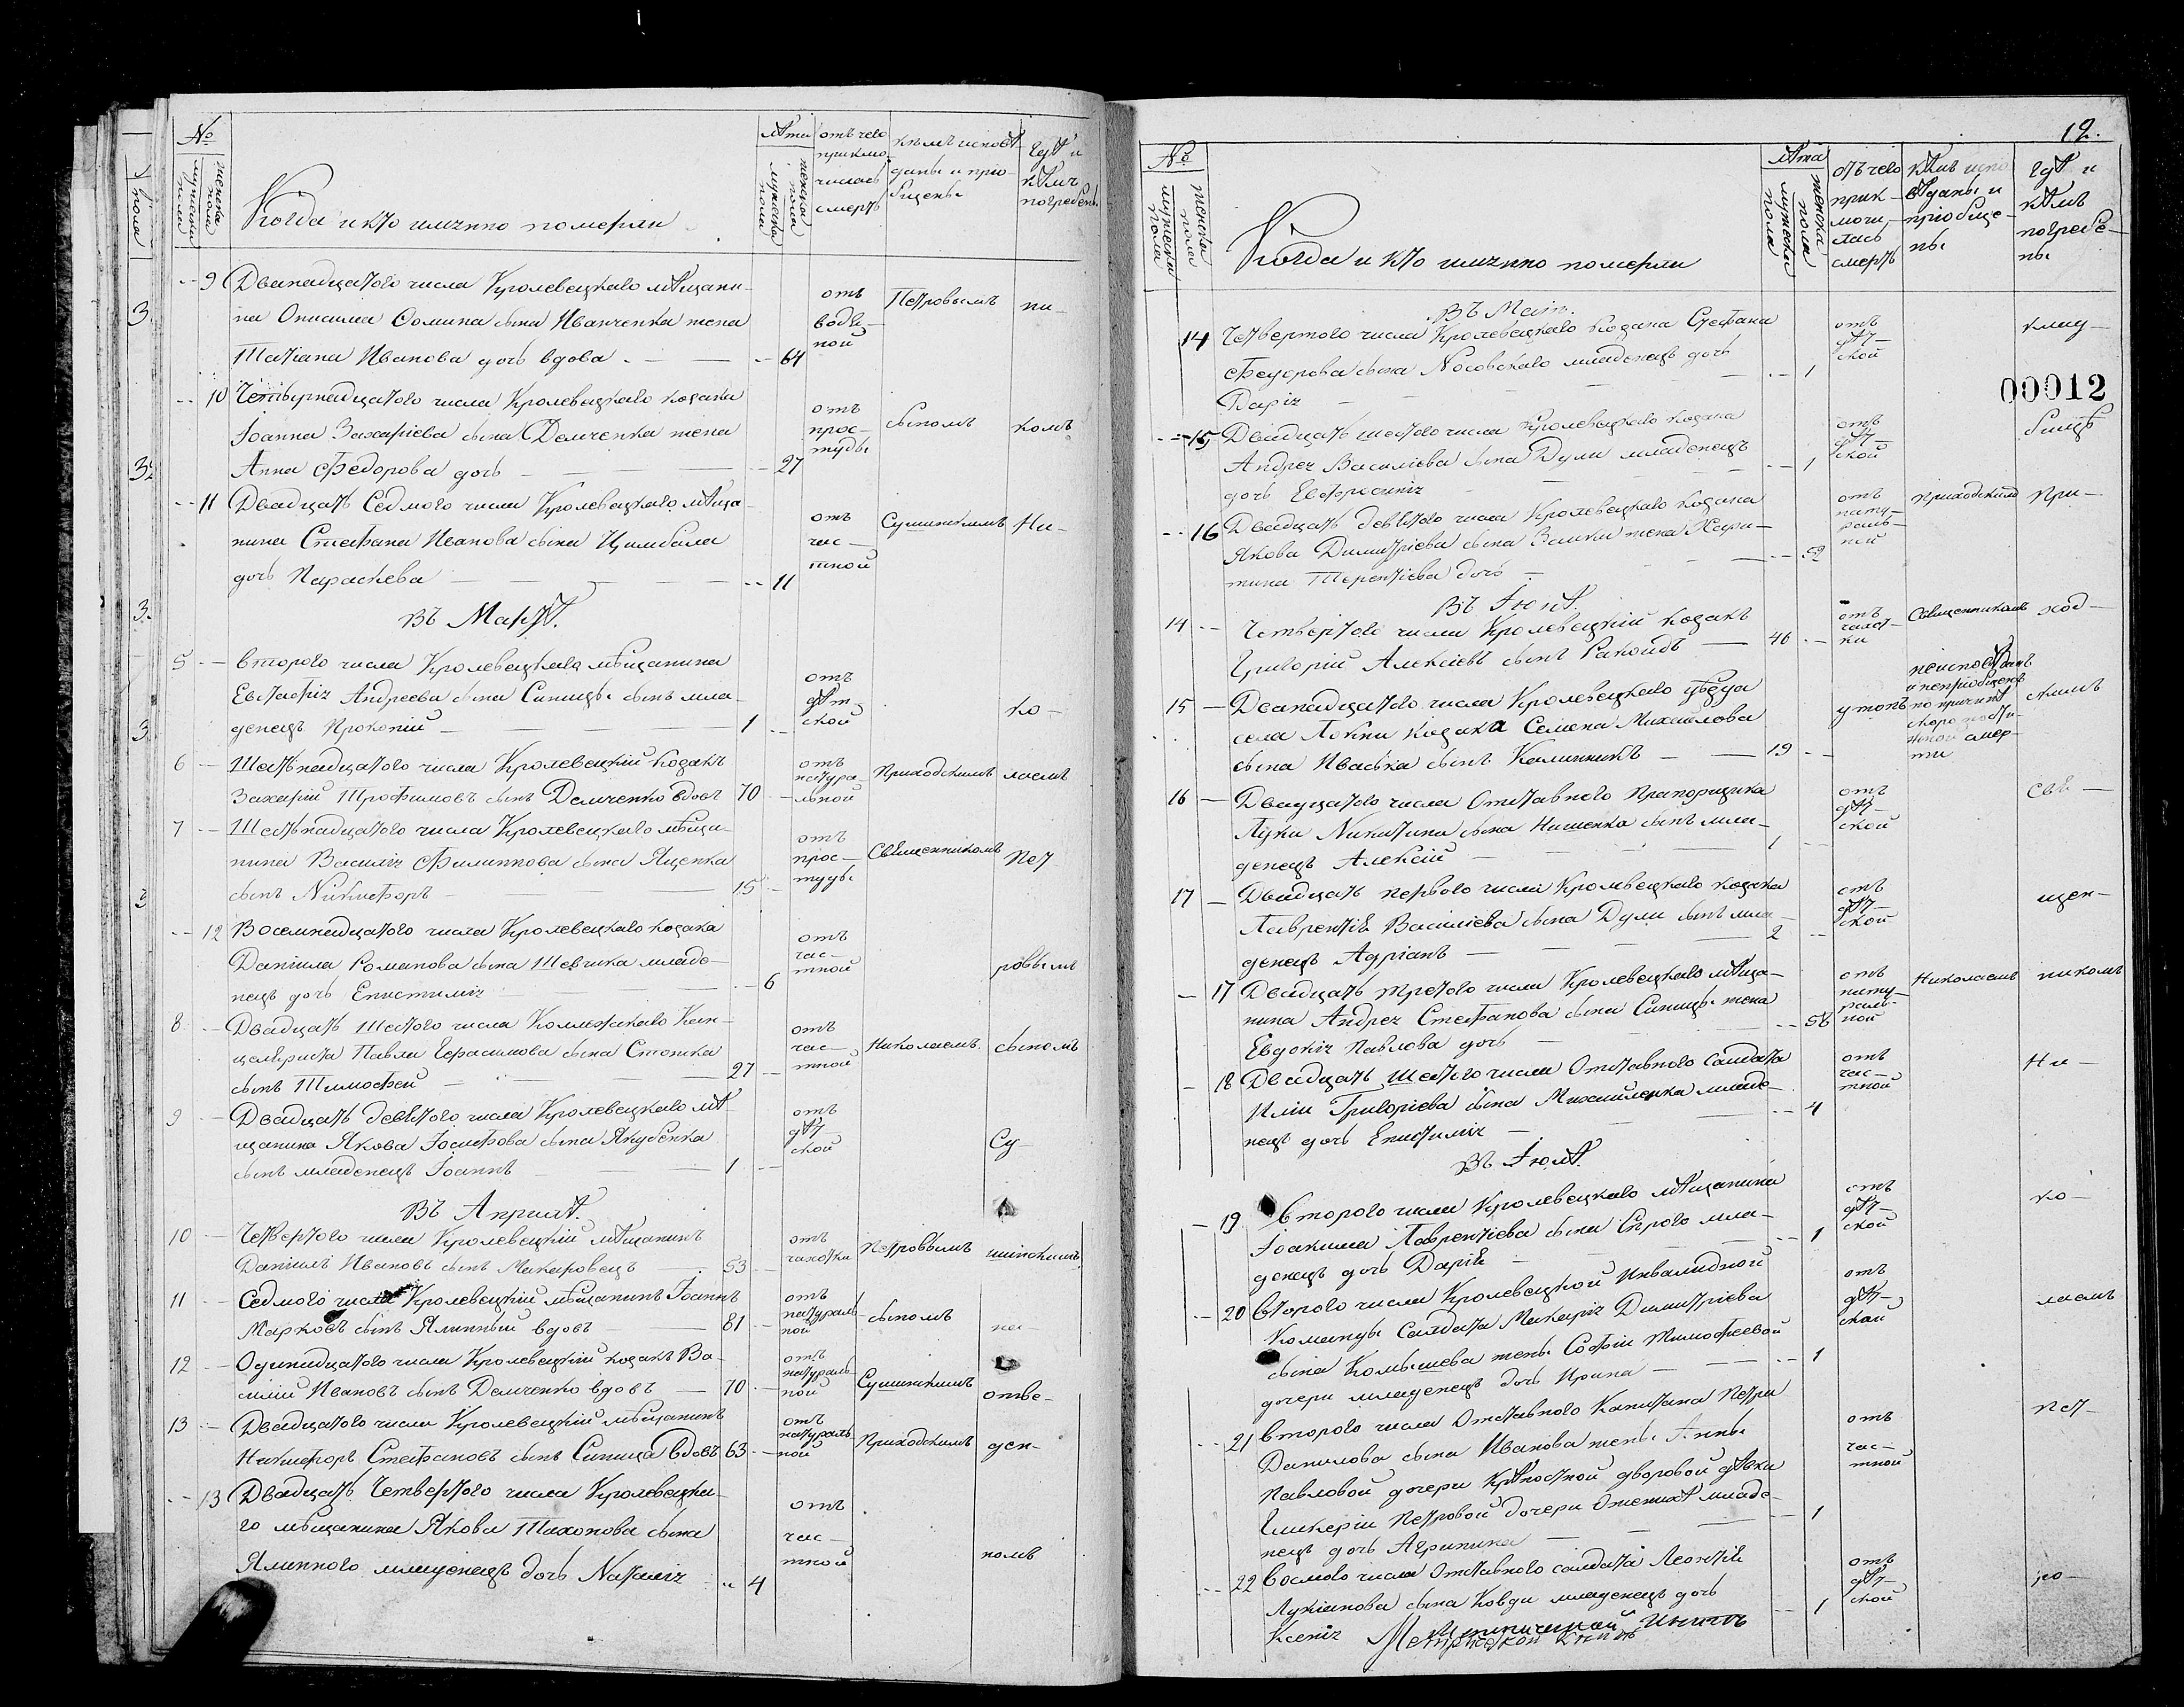 №
мужеска пола
женска пола
Когда и кто имянно померли
лѣта
мужеска пола
женска пола
отъ чего приклю-
чилась
смерть
кѣмъ исповѣ-
даны и прио-
бщены
Гдѣ и
кѣмъ
погребены
9 Дванадцатого числа Кролевецкаго мѣщани-
на Онисима Фомина сына Иванченка жена
Татіана Иванова дочь вдова 64
отъ
водя-
ной
Петровымъ
ни-
10 Четырнадцатого числа Кролевецкаго козака
Іоанна Захаріева сына Демченка жена
Анна Федорова дочь 27
отъ
прос-
туды
сыномъ
комъ
11 Двадцать Седмого числа Кролевецкаго мѣща-
нина Стефана Иванова сына Цимбала
дочь Параскева 11
отъ
час-
тной
Сушинскимъ
Ни-
Въ Мартѣ.
5 Второго числа Кролевецкаго мѣщанина
Евстафія Андреева сына Синицы сынъ мла-
денецъ Прокопій 1
отъ
дѣт-
ской
ко-
6 Шестьнадцатого числа Кролевецкій козакъ
Захарій Трофимовъ сынъ Демченко вдовъ 70
отъ
натура-
льной
Приходскимъ
лаемъ
7 Шестьнадцатого числа Кролевецкаго мѣща-
нина Василія Филиппова сына Яценка
сынъ Никифоръ 15
отъ
прос-
туды
Священникомъ
Пет
12 Восемнадцатого числа Кролевецкаго козака
Даніила Романова сына Шевчика младе-
нецъ дочь Епистимія 6
отъ
час-
тной
ровымъ
8 Двадцать Шестого числа Коллежскаго Кан-
целяриста Павла Герасимова сына
сынъ Тимофей 27
отъ
час-
тной
Николаемъ
сыномъ
9 Двадцать девятого числа Кролевецкаго мѣ-
щанина Якова Іосифова сына Якубенка
сынъ младенецъ Іоаннъ 1
отъ
дѣт-
ской
Су-
Въ Априлѣ.
10 Четвертого числа Кролевецкій мѣщанинъ
Даніилъ Ивановъ сынъ Макаровецъ 53
отъ
чахотки
Петровымъ
шинскимъ
11 Седмого числа Кролевецкій мѣщанинъ Іоаннъ
Марковъ сынъ Ялинный вдовъ 81
отъ
натураль
ной
сыномъ
на
12 Одинадцатого числа Кролевецкій козакъ Ва-
силій Ивановъ сынъ Демченко вдовъ 70
отъ
натураль
ной
Сушинскимъ
отве-
13 Двадцатого числа Кролевецкій мѣщанинъ
Никифоръ Стефановъ сынъ Синица вдовъ 63
отъ
натураль
ной
Приходскимъ
ден-
13 Двадцать Четвертого числа Кролевецка-
го мѣщанина Якова Тихонова сына
Ялинного младенецъ дочь Наталія 4
отъ
час-
тной
номъ
12.
№
мужеска пола
женска пола
Когда и кто имянно померли
лѣта
мужеска пола
женска пола
отъ чего
прик-
лючи-
лась
смерть
кѣмъ испо
вѣданы и
пріобще-
ны
Гдѣ и
кѣмъ
погребе-
ны
00012
Въ Маіи.
14 Четвертого числа Кролевецкаго козака Стефана
Феодорова сына Носовскаго младенецъ дочь
Дарія 1
отъ
дѣт-
ской
клад-
15 Двадцать шестого числа Кролевецкаго козака
Андрея Василіева сына Дули младенецъ
дочь Евфросинія 1
отъ
дѣт-
ской
бищѣ
16 Двадцать девятого числа Кролевецкаго козака
Якова Димитріева сына Заики жена Хари-
тина Терентіева дочь 59
отъ
нату-
раль-
ной
Приходскимъ
При-
Въ Іюнѣ.
14 Четвертого числа Кролевецкій козакъ
Григорій Алексіевъ сынъ 46
отъ
чахот-
ки
Священникомъ
ход-
15 Дванадцатого числа Кролевецкаго уѣзда
села Локни козака Семена Михайлова
сына Иваська сынъ Калинникъ 19
утопъ
неисповѣданъ
и непріобщенъ
по причинѣ
скоропости-
жной смер-
ти
скимъ
16 Двадцатого числа Отставного Прапорщика
Луки Никитина сына сынъ мла-
денецъ Алексій 1
отъ
дѣт-
ской
Свя-
17 Двадцать первого числа Кролевецкаго козака
Лаврентія Василіева сына Дули сынъ мла-
денецъ Адріанъ 2
отъ
дѣт-
ской
щен-
17 Двадцать третого числа Кролевецкаго мѣща-
нина Андрея Стефанова сына Синицы жена
Евдокія Павлова дочь 58
отъ
нату-
раль-
ной
Николаемъ
никомъ
18 Двадцать шестого числа Отставного салдата
Иліи Григоріева сына Михайленка младе-
нецъ дочь Епистимія 4
отъ
час-
тной
Ни-
Въ Іюлѣ.
19 Второго числа Кролевецкаго мѣщанина
Іоакима Лаврентіева сына Сѣрого мла-
денецъ дочь Дарія 1
отъ
дѣт-
ской
ко-
20 Второго числа Кролевецкой Инвалидной
Команды Салдата Макарія Димитріева
сына Комышева жены Софіи Тимофеевой
дочери младенецъ дочь Ирина 1
отъ
дѣт-
ской
лаемъ
21 Второго числа Отставного Капитана Петра
Данилова сына Иванова жены Анны
Павловой дочери крѣпостной дворовой дѣвки
Гликеріи Петровой дочери младе-
нецъ дочь Агрипина 1
отъ
час-
тной
Пет-
22 Восмого числа Отставного салдата Леонтія
Лукіанова сына Ковди младенецъ дочь
Ксенія 1
отъ
дѣт-
ской
ро-
Метрической